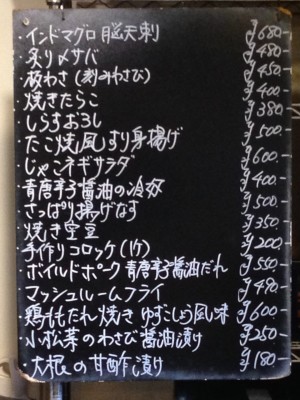 ・インドマグロ脳天刺 ¥680-
・炙り〆サバ ¥480-
・板わさ(刻みわさび) ¥450-
・焼きたらこ ¥400-
・しらすおろし ¥380-
・たこ焼風すり身揚げ ¥500-
・じゃこネギサラダ ¥600-
・青唐辛子醤油の冷奴 ¥400-
・さっぱり揚げなす ¥500-
・焼き空豆 ¥350-
・手作りコロッケ(1ケ) ¥200-
・ボイルドポーク青唐辛子醤油だれ ¥550-
・マッシュルームフライ ¥490-
・鶏ももたれ焼き ゆずこしょう風味 ¥600-
・小松菜のわさび醤油漬け ¥250-
・大根の甘酢漬け ¥180-